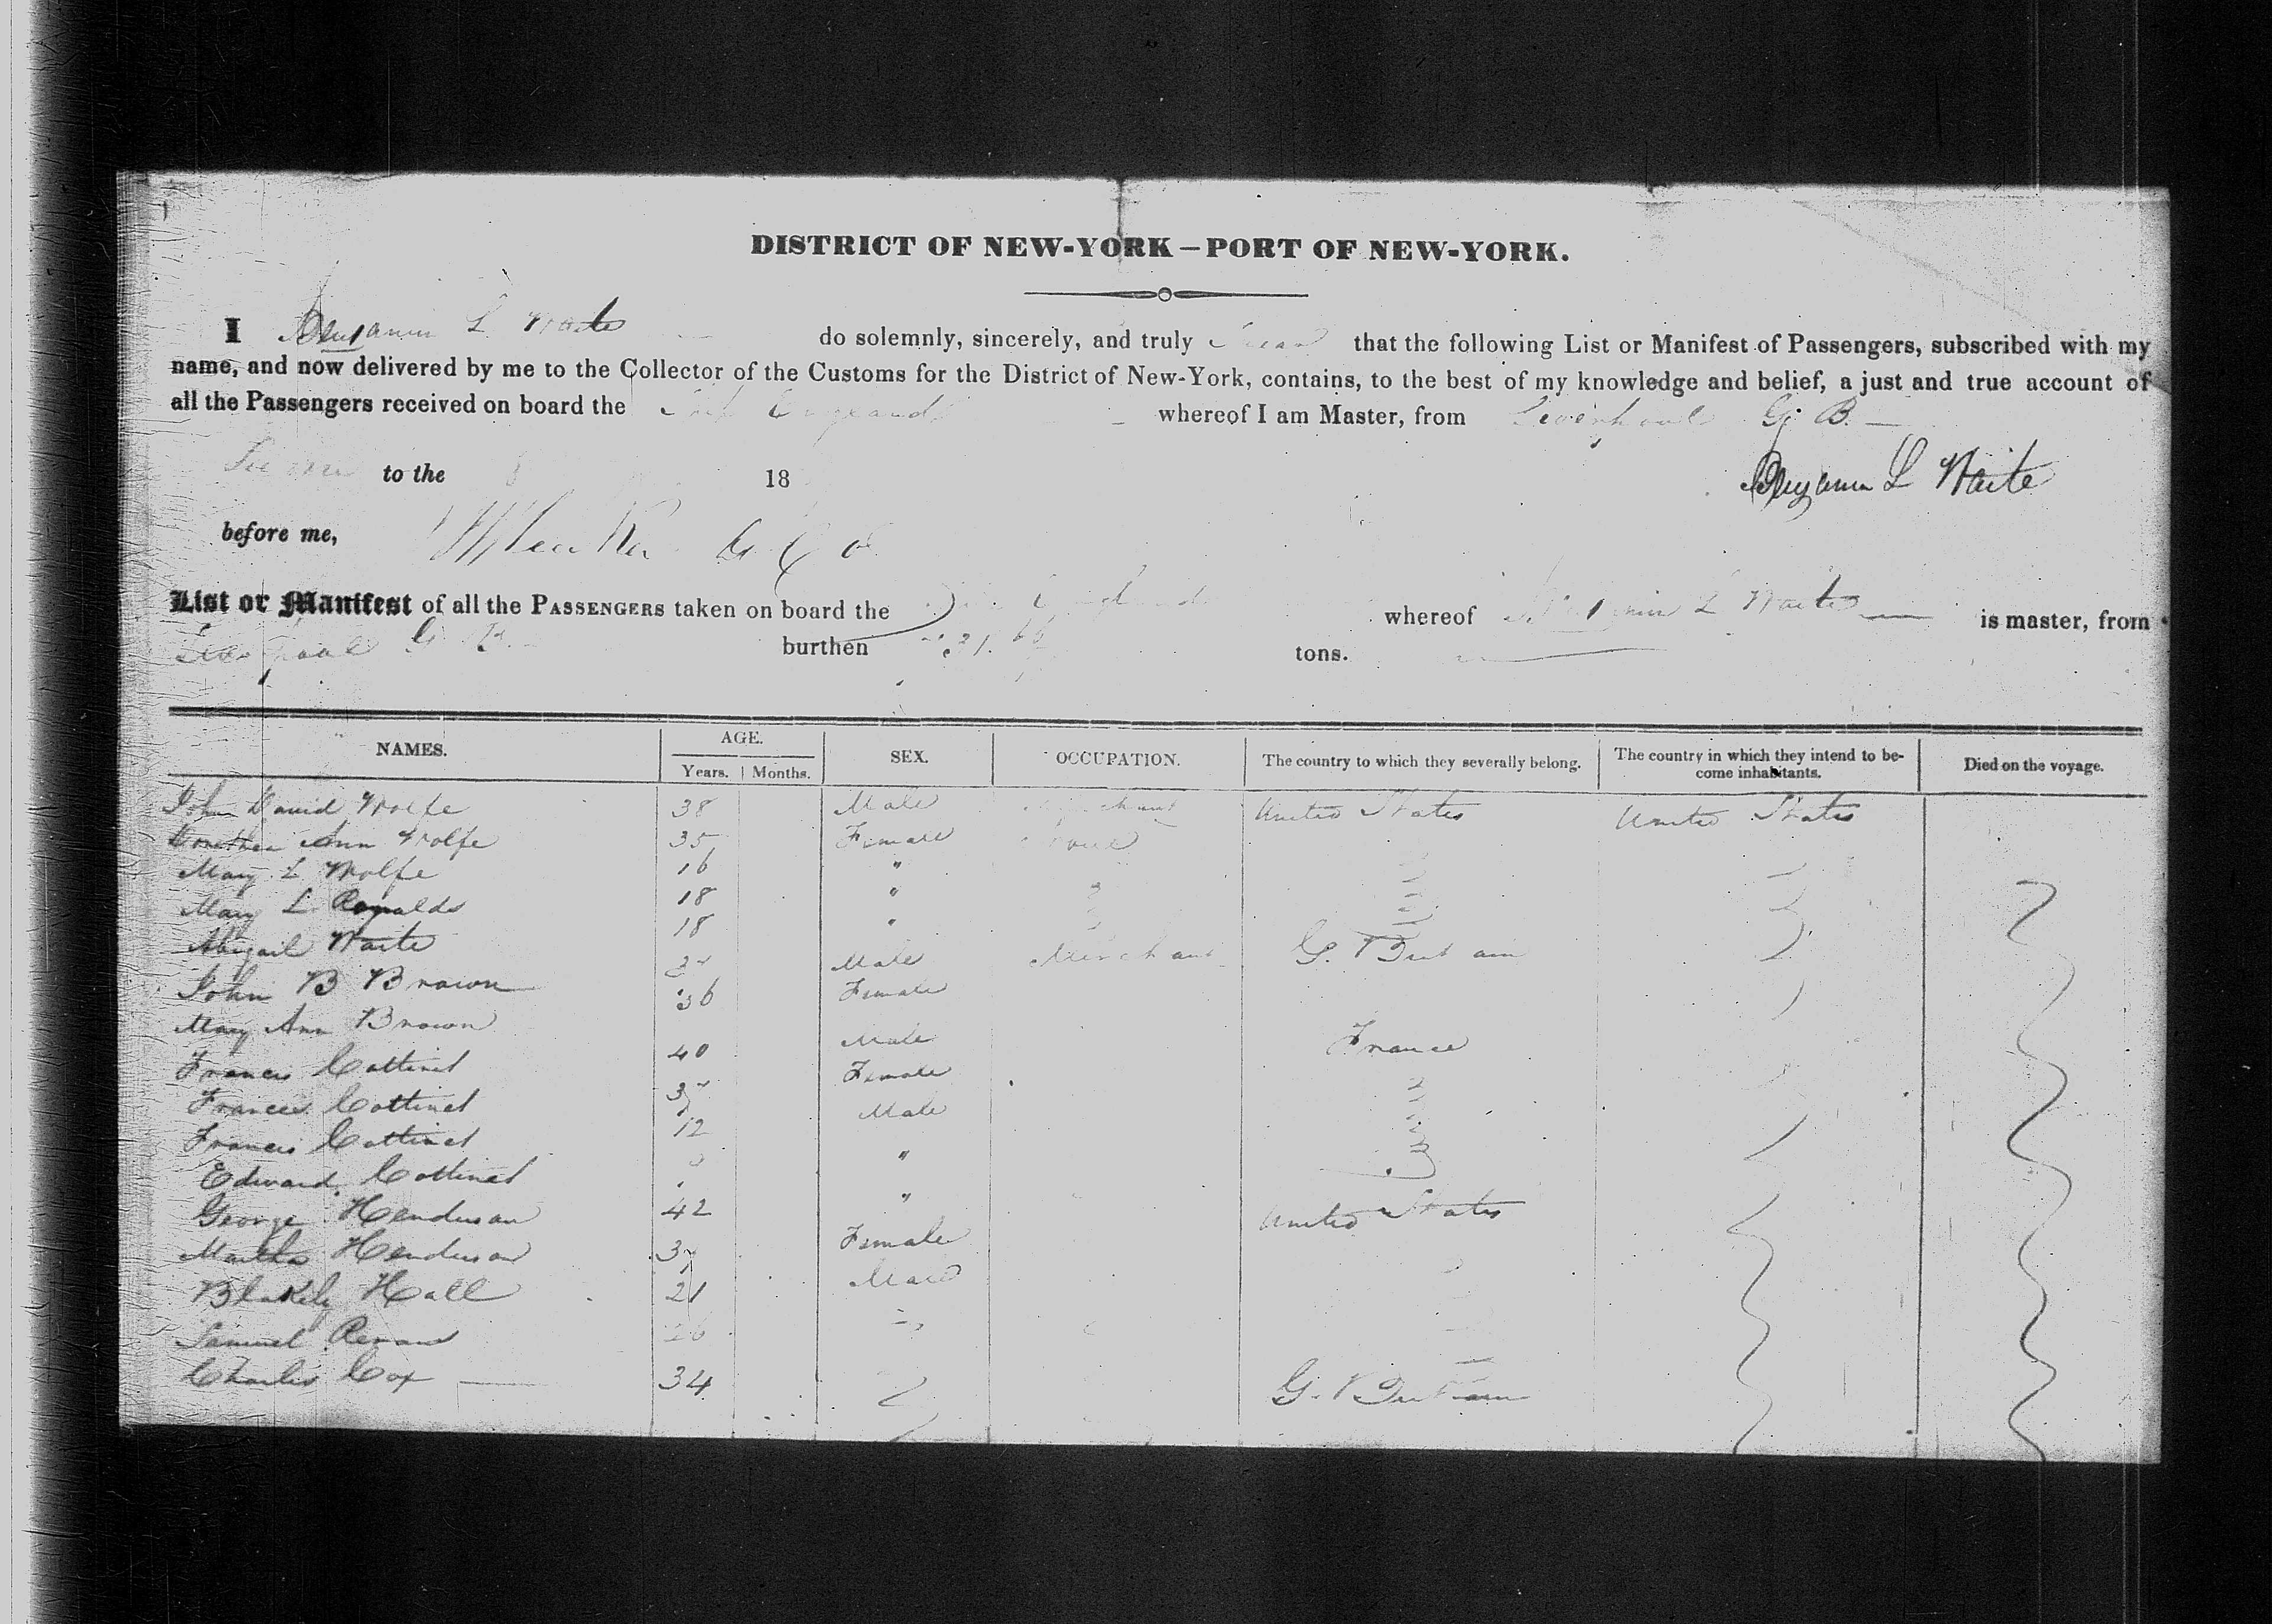 DISTRICT OF NEW-YORK – PORT OF NEW-YORK.
I Benjamin L Waite do solemnly, sincerely, and truly Swear that the following List or Manifest of Passengers, subscribed with my
name, and now delivered by me to the Collector of the Customs for the District of New-York, contains, to the best of my knowledge and belief, a just and true account of
all the Passengers received on board the Ship England whereof I am Master, from Liverpool G. B.
to the 18
Benjamin L Waite
before me,
List or Manifest of all the PASSENGERS taken on board the England whereof Benjamin L Waite is master, from
Liverpool G. B. burthen tons.
NAMES. AGE. Years. Months. SEX. OCCUPATION. The country to which they severally belong. The country in which they intend to become inhabitants. Died on the voyage.
John David Wolfe 38 Male Merchant United States United States
Dorothea Ann Wolfe 35 Female None
Mary L Wolfe 16 "
Mary L Ronalds 18 "
Abigail Waite 18 "
John B Brown Male Merchant G. Britain
Mary Ann Brown 36 Female
Francis Cottinet 40 Male France
Francis Cottinet Female
Francis Cottinet 12 Male
Edward Cottinet "
George Henderson 42 " United States
Martha Henderson Female
Blakely Hall 21 Male
Samuel 26
Charles Cox 34 G. Britain